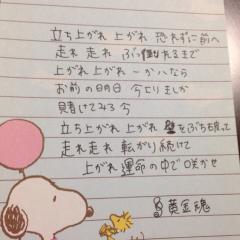 立ち上がれ 上がれ 恐れずに前へ
走れ 走れ ぶっ倒れるまで
上がれ 上がれ 一か八なら
お前の明日 今じりましか
賭けてみろ今
立ち上がれ 上がれ 壁をぶち破って
走れ走れ 転がり続けて
上がれ 運命の中で咲かせ
黄金魂